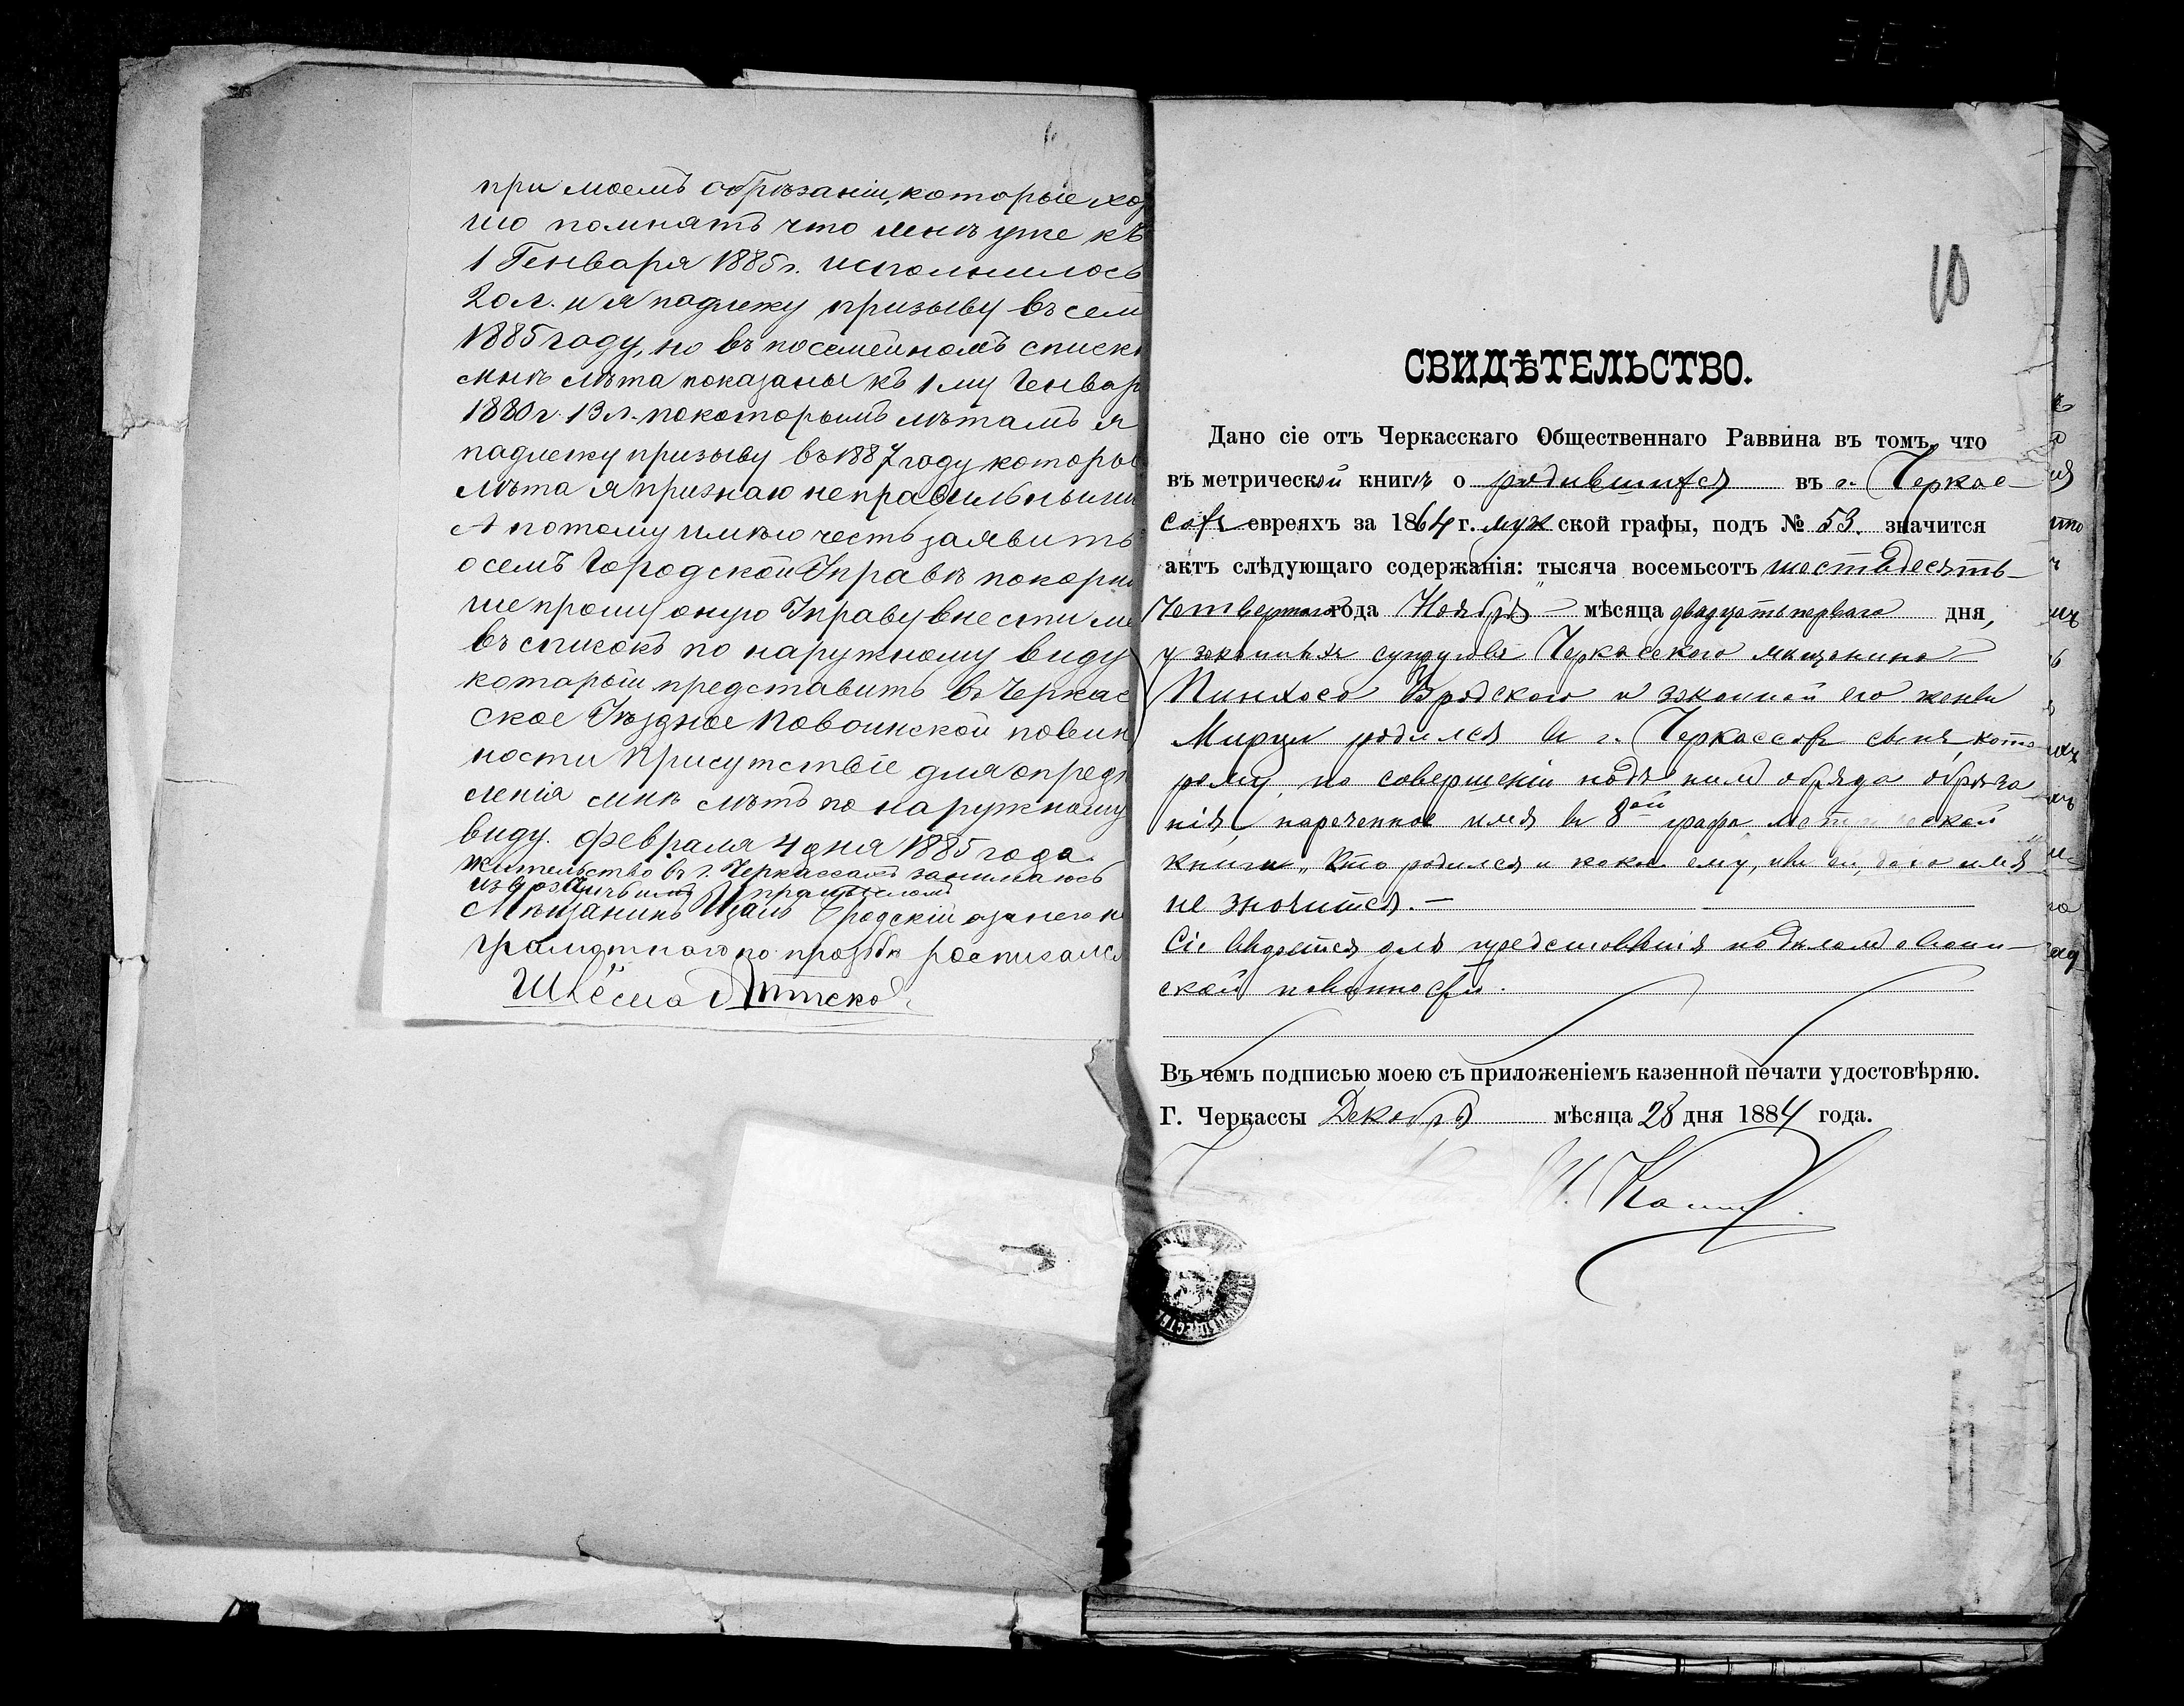 при моемъ обрѣзаніи, которые хо
шо помнятъ что мнѣ уже къ
1 Генваря 1885 г. исполнилось
20 л. и я подлежу призыву въ сем
1885 году, но въ посемейномъ списк
мнѣ лѣта показаны къ 1 му Генвар
1880 г. 13 л. по которымъ лѣтамъ я
подлежу призыву въ 1887 году которы
лѣта я признаю неправильными
А потому имѣю честь заявить
о семъ Городской Управѣ покорн
ше прошу оную Управу внести ме
въ списокъ по наружному виду
который представить въ Черкас
ское Уѣздное по воинской повин
ности Присутствіе для опредѣ
ленія мнѣ лѣтъ по наружному
виду. Февраля 4 дня 1885 года
жительство въ г. Черкассахъ занимаюсь
Мѣщанинъ Бродскій а за него не
грамотнаго по прозбѣ росписался
Шлёма
10
СВИДѢТЕЛЬСТВО.
Дано сіе отъ Черкасскаго Общественнаго Раввина въ томъ, что
въ метрической книгѣ о родившихся въ г. Черкас-
сахъ евреяхъ за 1864 г. муж ской графы, подъ № 53. значится
актъ слѣдующаго содержанія: „тысяча восемьсотъ шестьдесятъ
четвертаго года Ноября мѣсяца двадцать перваго дня,
у законныхъ супруговъ Черкасскаго мѣщанина
Пинхоса Бродскаго и законной его жены
Мирли родился въ г. Черкассахъ сынъ, кото
рому, по совершеніи надъ нимъ обряда обрѣза
нія, нареченное имя въ 8ой графѣ метрической
книги „Кто родился и какое ему, или ей, дано имя
не значится. —
Сіе выдается для представленія по дѣламъ о воин-
ской повинности.
Въ чемъ подписью моею съ приложеніемъ казенной печати удостовѣряю.
Г. Черкассы Декабря мѣсяца 28 дня 1884 года.